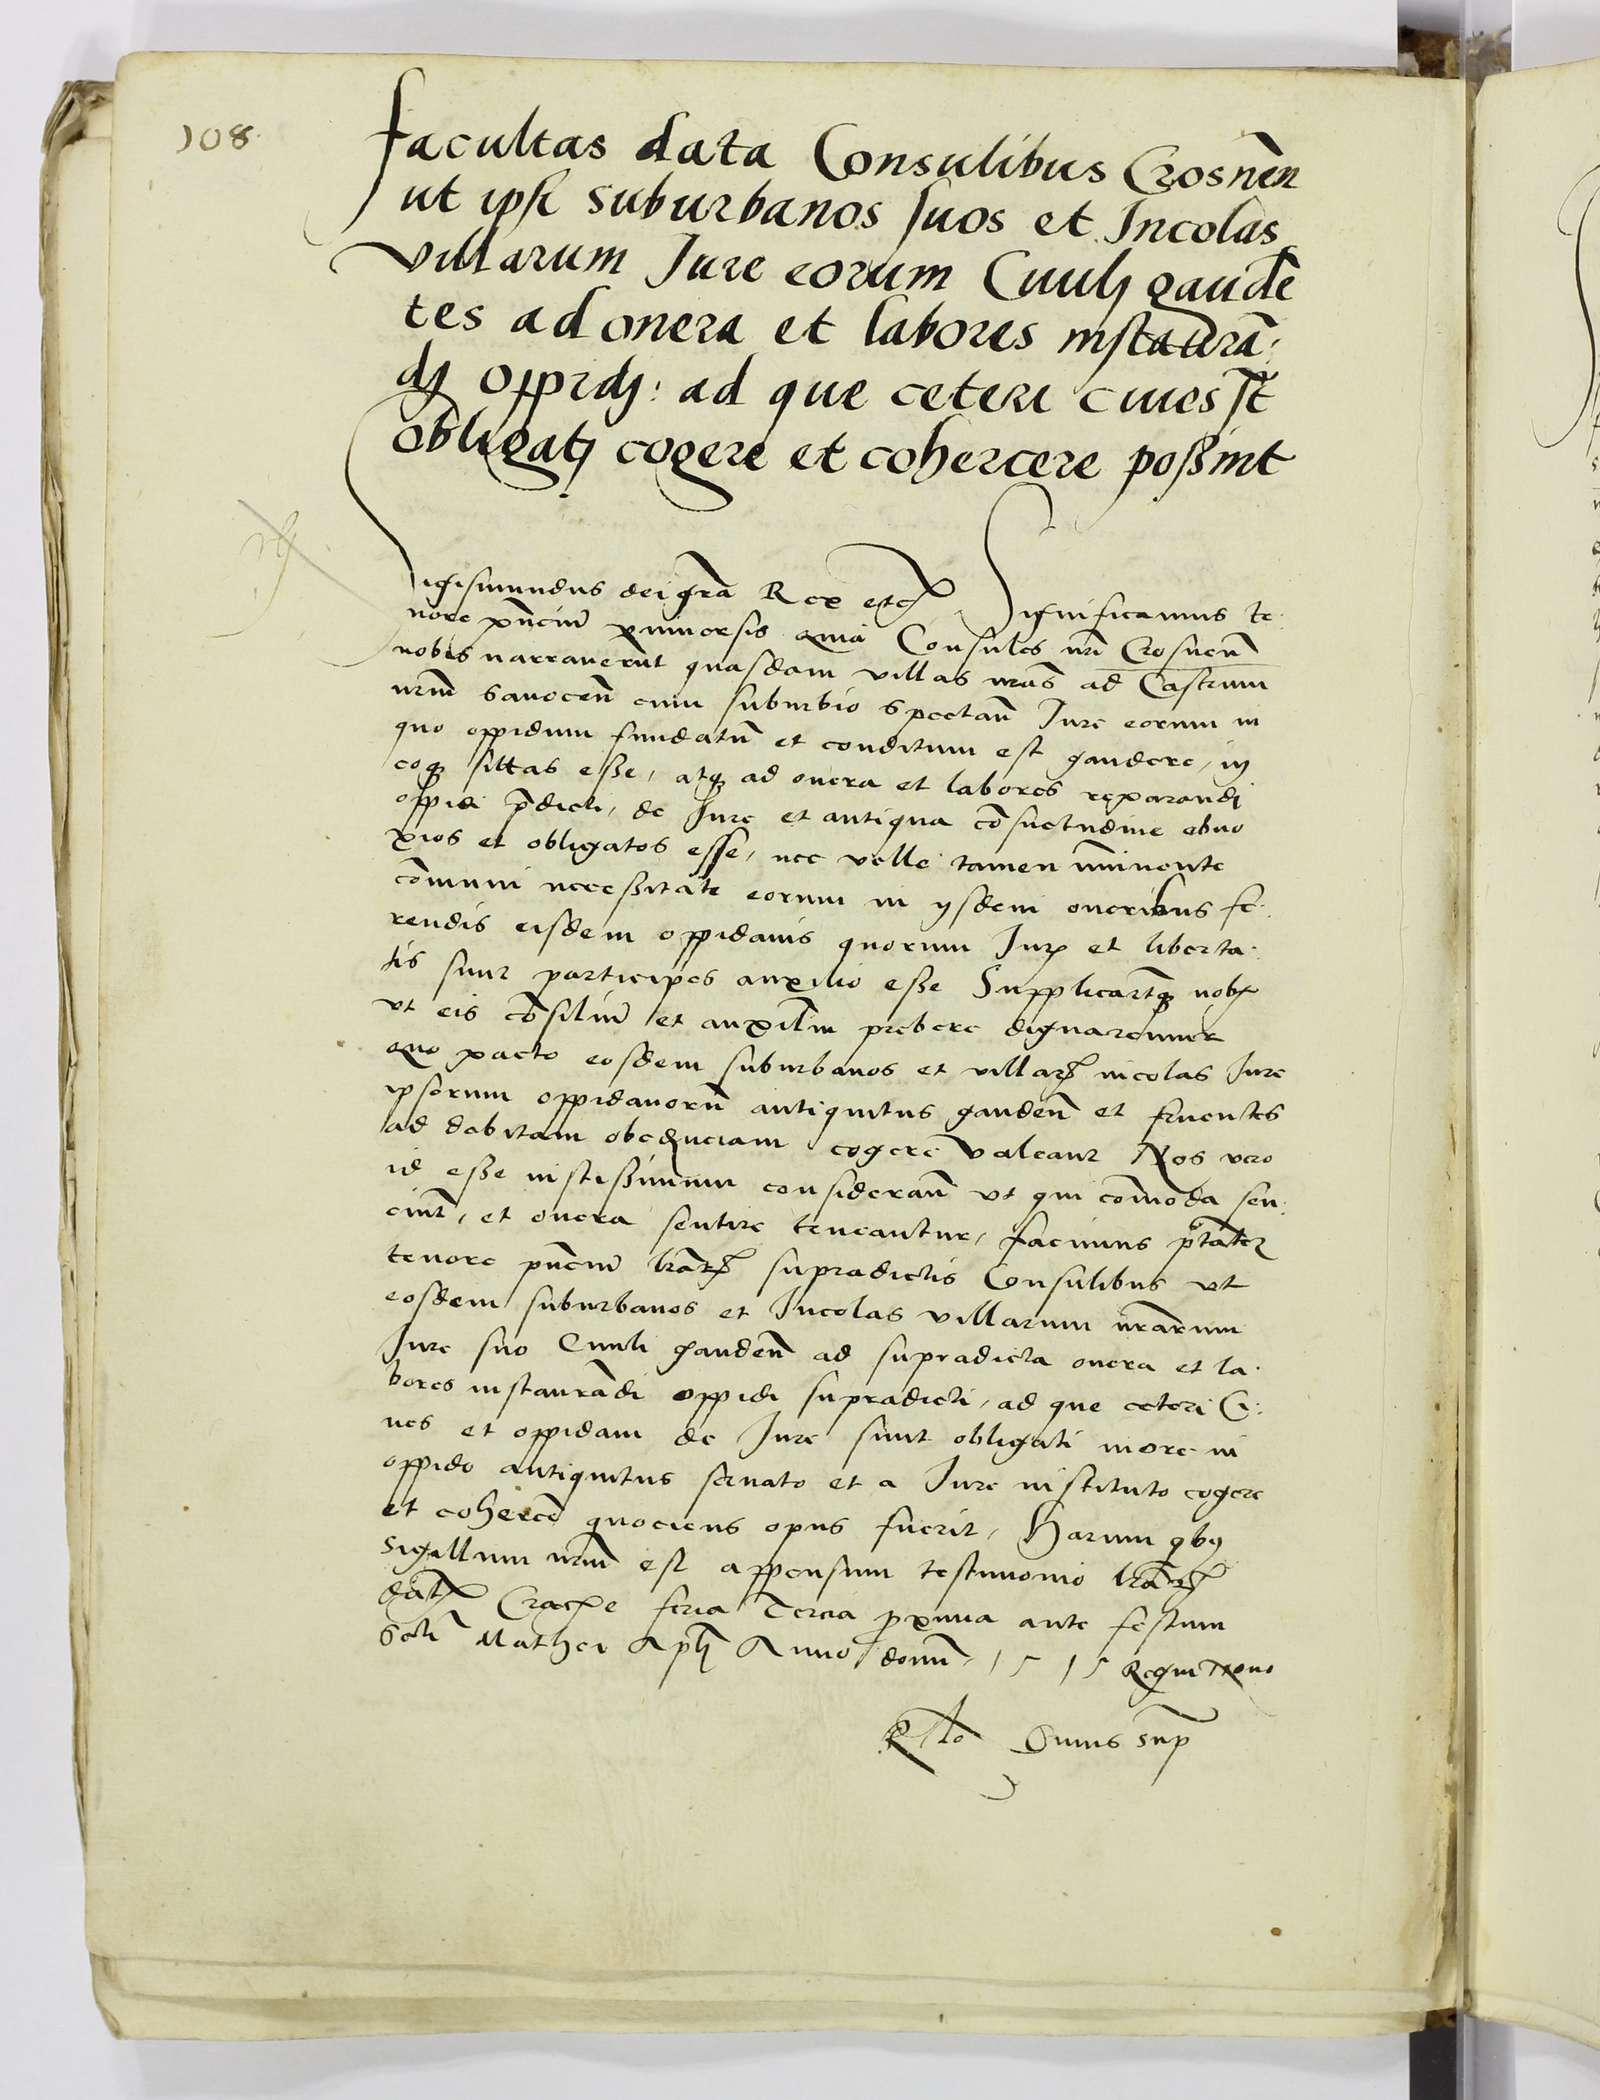 108
facultas data Consulibus Crosnen̄
ut ipsi suburbanos suos et Incolas
villarum Jure eorum Ciuilj gaudē
tes ad onera et labores instaurā:
dj oppidj: ad que ceteri ciues st̄
obligatj cogere et cohercere possint
Sigismundus dei gr̄a Rex etc̄ Significamus te:
nore pn̄cium vniuersis quia Consules nr̄i Crosnen̄
nobis narrauerunt quasdam villas nr̄as ad Castrum
nr̄m Sanocen̄ cum suburbio spectan̄ Jure eorum in
quo oppidum fundatū et conditum est gaudere, in
eoq3 sittas esse, atq3 ad onera et labores reparandj
oppidi p̄dicti, de Jure et antiqua cōsuetudine obno
xios et obligatos esse, nec velle tamen īminente
cōmuni necessitate eorum in ijsdem oneribus fe:
rendis eisdem oppidanis quorum Jur̄ et liberta:
tis sunt participes auxilio esse Supplicarūtq3 nob̄
vt eis cōsilium et auxilīu prebere dignaremur
quo pacto eosdem suburbanos et villar̄ incolas Jure
ipsorum oppidanorū antiquitus gauden̄ et fruentes
ad debitam obedienciam cogere valeant Nos vero
id esse iustissimum consideran̄ vt qui cōmoda sen:
ciunt, et onera sentire teneantur, facimus p̄tatem
tenore pn̄cium lr̄ar̄ supradictis Consulibus vt
eosdem suburbanos et Incolas villarum nr̄arum
Jure suo Ciuili gauden̄ ad supradicta onera et la:
bores instaurādi oppidi supradicti, ad que ceteri Ci:
ues et oppidani de Jure sunt obligati more in
oppido antiquitus seruato et a Jure instituto cogere
et coherce͞ quociens opus fuerit, Harum qb9
sigillum nr̄m est appensum testimonio lr̄ar̄
dat̄ Crac̄e feria Tercia proxima ante festum
Scti Mathei Apl̄j Anno domī 1515 Regni nr̄i nono
R͞lo Cuius sup̄